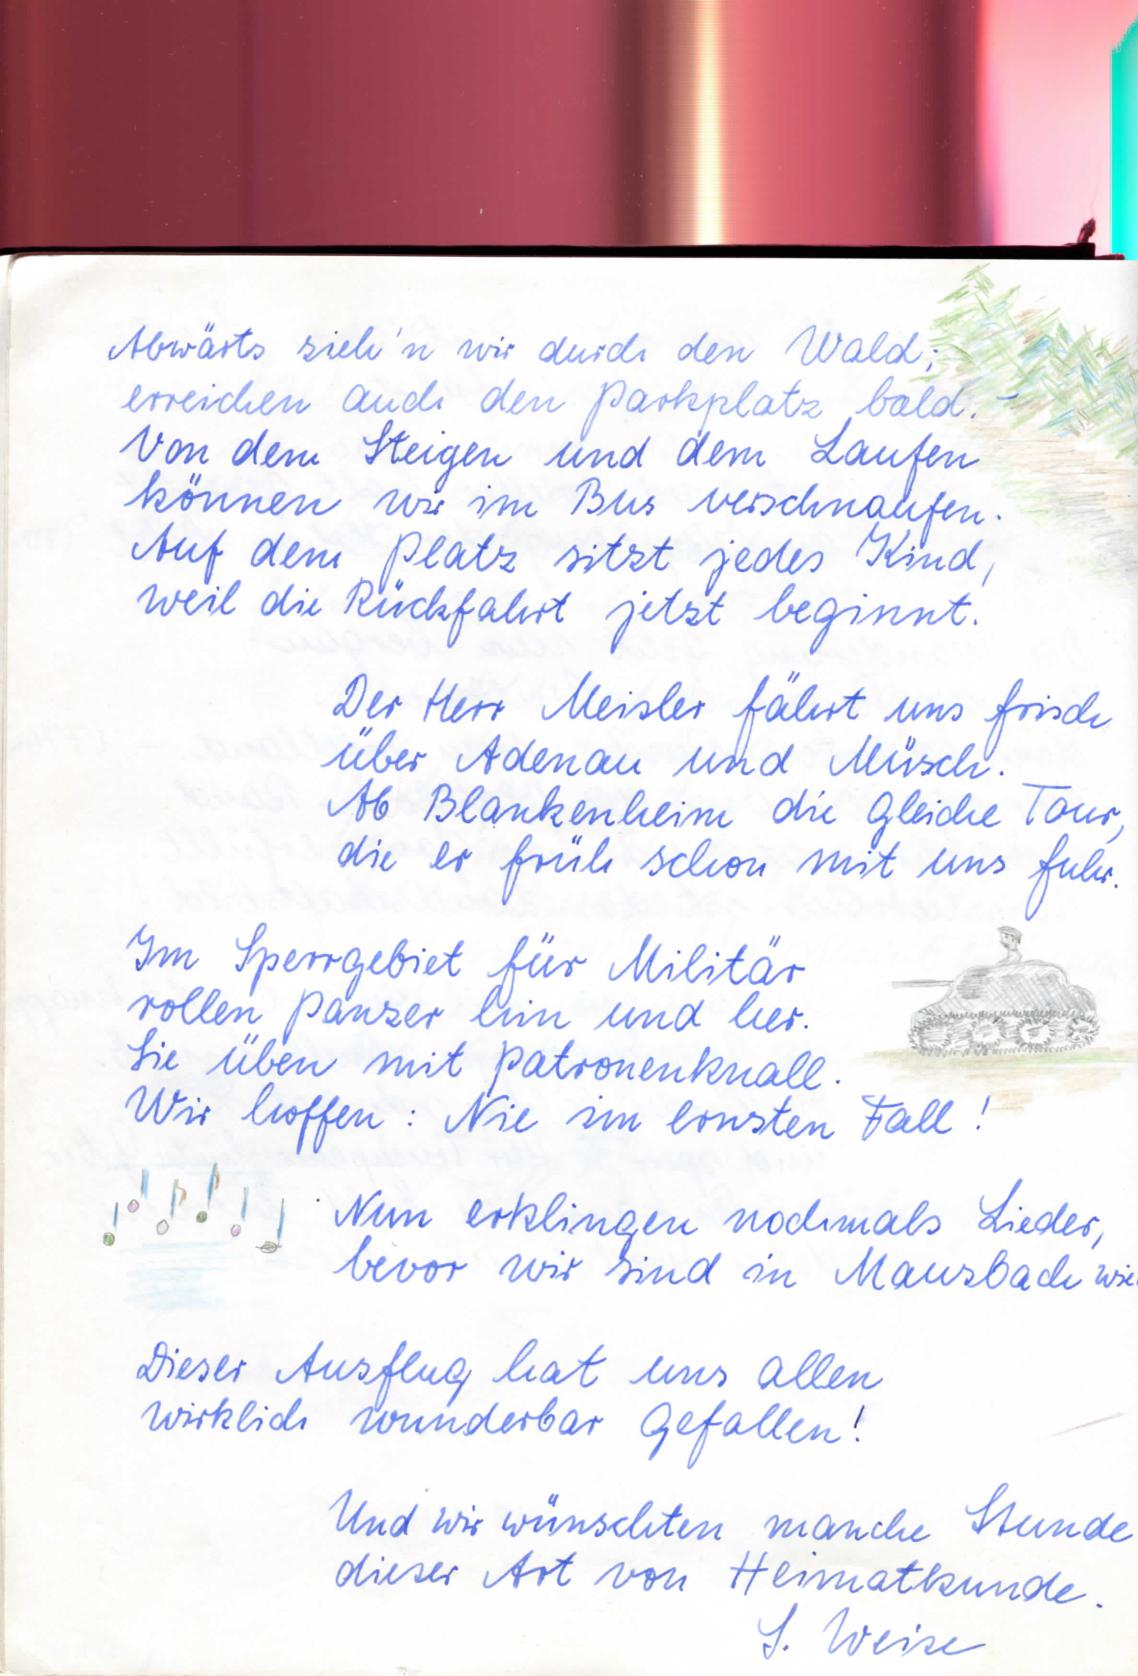 Abwärts zieh'n wir durch den Wald;
erreichen auch den Parkplatz bald. -
Von dem Steigen und dem Laufen
können wir im Bus verschnaufen.
Auf dem Platz sitzt jedes Kind,
weil die Rückfahrt jetzt beginnt.
Der Herr Meisler fährt uns frisch
über Adenau und Müsch.
Ab Blankenheim die gleiche Tour,
die er früh schon mit uns fuhr.
Im Sperrgebiet für Militär
rollen Panzer hin und her.
Sie üben mit Patronenknall.
Wir hoffen: Nie im ernsten Fall!
Nun erklingen nochmals Lieder,
bevor wir sind in Mausbach wie
Dieser Ausflug hat uns allen
wirklich wunderbar gefallen!
Und wir wünschten manche Stunde
dieser Art von Heimatkunde.
S. Weise